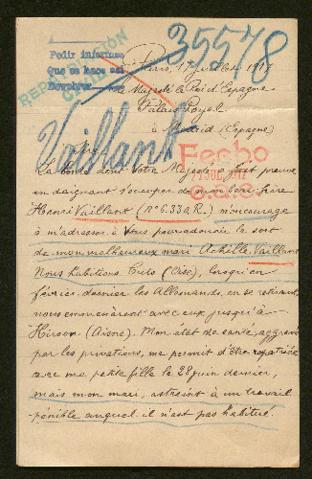 35578
Pedir informe
Que se hace así
REPATRIACIÓN
Paris, 17 juillet 1917
Sa Majesté le Roi d'Espagne
Palais Royal
à Madrid (Espagne)
Vaillant
Fecho
Sire,
La bonté dont Votre Majesté a fait preuve
en daignant s'occuper de mon beau-frère
Henri Vaillant (n° 633 a R.) m'encourage
à m'adresser à Vous pour adoucir le sort
de mon malheureux mari Achille Vaillant
Nous habitions (Oise), lorsqu'en
février dernier les Allemands, en se retirant,
nous emmenèrent avec eux jusqu'à
Hirson (Aisne). Mon état de santé, aggravé
par les privations, me permit d'être rapatriée
avec ma petite fille le 28 juin dernier,
mais mon mari, astreint à un travail
pénible auquel il n'est pas habitué.